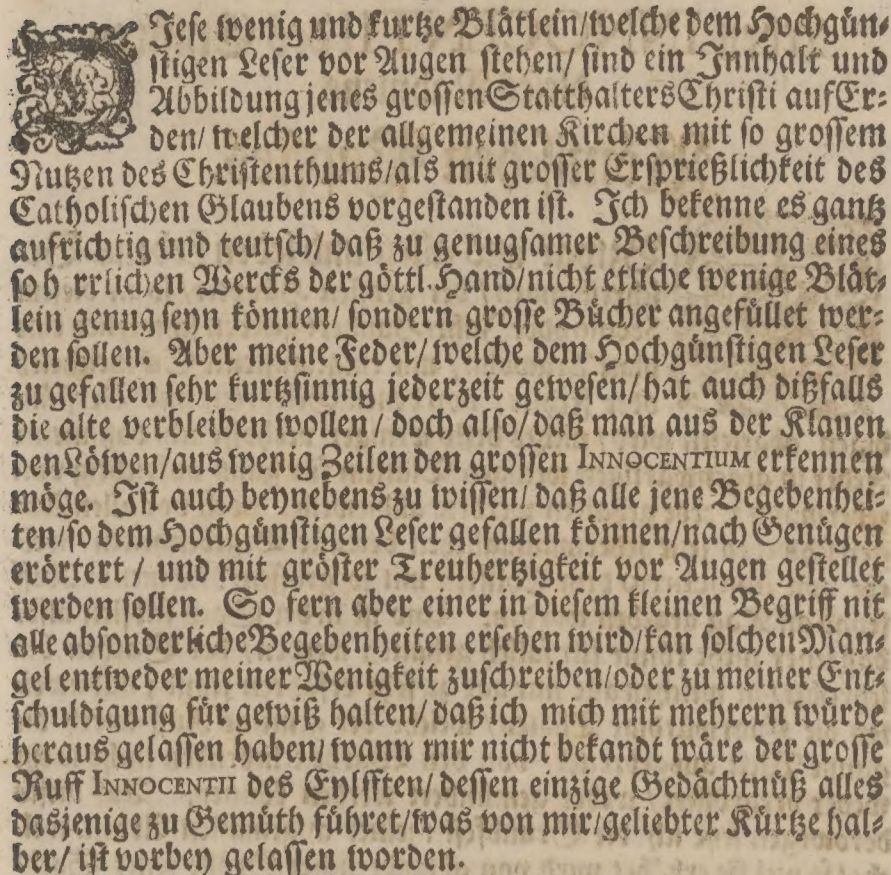 DJese wenig und kurtze Blätlein/welche dem Hochgün-
stigen Leser vor Augen stehen/ sind ein Innhalt und
Abbildung jenes grossen Statthalters Christi auf Er-
den/ welcher der allgemeinen Kirchen mit so grossem
Nutzen des Christenthums/als mit grosser Ersprießlichkeit des
Catholischen Glaubens vorgestanden ist. Ich bekenne es gantz
aufrichtig und teutsch/ daß zu genugsamer Beschreibung eines
so h rrlichen Wercks der göttl. Hand/nicht etliche wenige Blät-
lein genug seyn können/ sondern grosse Bücher angefüllet wer-
den sollen. Aber meine Feder/ welche dem Hochgünstigen Leser
zu gefallen sehr kurtzsinnig jederzeit gewesen/ hat auch dißfalls
die alte verbleiben wollen / doch also/ daß man aus der Klauen
den Löwen/aus wenig Zeilen den grossen INNOCENTIUM erkennen
möge. Ist auch beynebens zu wissen/ daß alle jene Begebenhei-
ten/so dem Hochgünstigen Leser gefallen können/nach Genügen
erörtert / und mit gröster Treuhertzigkeit vor Augen gestellet
werden sollen. So fern aber einer in diesem kleinen Begriff nit
alle absonderliche Begebenheiten ersehen wird/kan solchen Man-
gel entweder meiner Wenigkeit zuschreiben/oder zu meiner Ent-
schuldigung für gewiß halten/ daß ich mich mit mehrern würde
heraus gelassen haben/ wann mir nicht bekandt wäre der grosse
Ruff INNOCENTII des Eylfften/ dessen einzige Gedächtnüß alles
dasjenige zu Gemüth führet/was von mir/geliebter Kürtze hal-
ber/ ist vorbey gelassen worden.